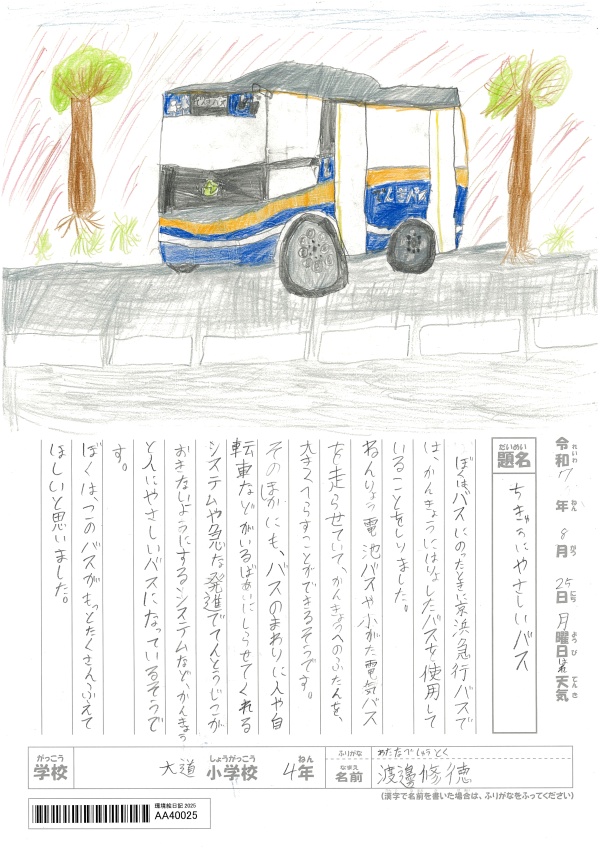 でんきバス
令和7年8月25日月曜日天気
れいわ ねん がつ にち ようび てんき
だいめい
題名
ちきゅうにやさしいバス
ぼくはバスにのったときに京浜急行バスで
は、かんきょうにはいりょしたバスを使用して
いることをしりました。
ねんりょう電池バスや小がた電気バス
を走らせていて、かんきょうへのふたんを、
大きくへらすことができるそうです。
そのほかにも、バスのまわりに人や自
転車などがいるばあいにしらせてくれる
システムや急な発進でてんとうじこが
おきないようにするシステムなど、かんきょう
と人にやさしいバスになっているそうで
す。
ぼくは、このバスがもっとたくさんふえて
ほしいと思いました。
がっこう しょうがっこう ねん
学校 大道 小学校 4年
ふりがな わたなべ しゅうとく
なまえ
名前 渡邊修德
(漢字で名前を書いた場合は、ふりがなをふってください)
環境絵日記 2025
AA40025